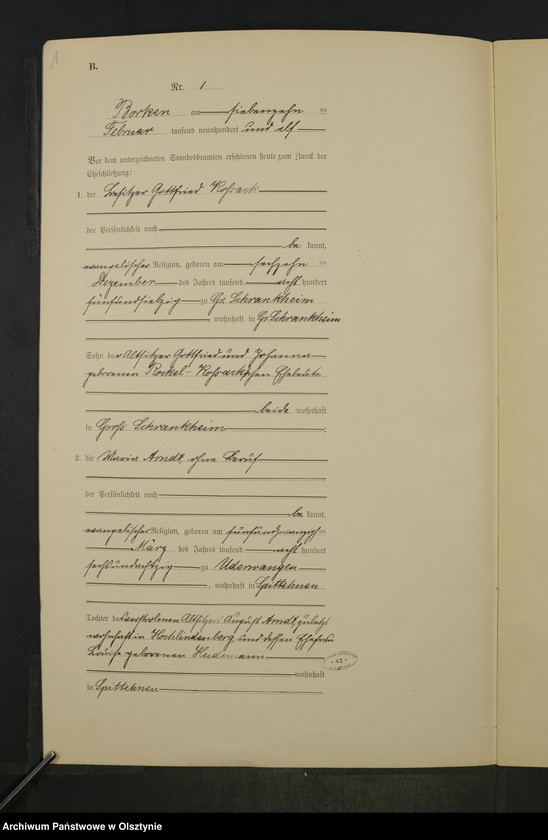 1
B.
Nr. 1
Borken am siebenzehn ten
Februar tausend neunhundert und elf
Vor dem unterzeichneten Standesbeamten erschienen heute zum Zweck der
Eheschließung:
1. der Besitzer Gottfried Kossack
der Persönlichkeit nach
be kannt,
evangelischer Religion, geboren am sechzehn ten
Dezember des Jahres tausend acht hundert
fünfundsiebzig zu Gr. Schrankheim
, wohnhaft in Gr. Schrankheim
Sohn der Altsitzer Gottfried und Johanna
geborenen Rockel-Kossack'schen Eheleute
beide wohnhaft
in Groß Schrankheim ;
2. die Maria Arndt, ohne Beruf
der Persönlichkeit nach
be kannt,
evangelischer Religion, geboren am fünfundzwanzig
März des Jahres tausend acht hundert
sechsundachtzig zu Uderwangen
, wohnhaft in Spittehnen
Tochter des verstorbenen Altsitzers August Arndt, zuletzt
wohnhaft in Hochlindenberg und dessen Ehefrau
Louise geborenen Heidemann
wohnhaft
in Spittehnen
42
Archiwum Państwowe w Olsztynie